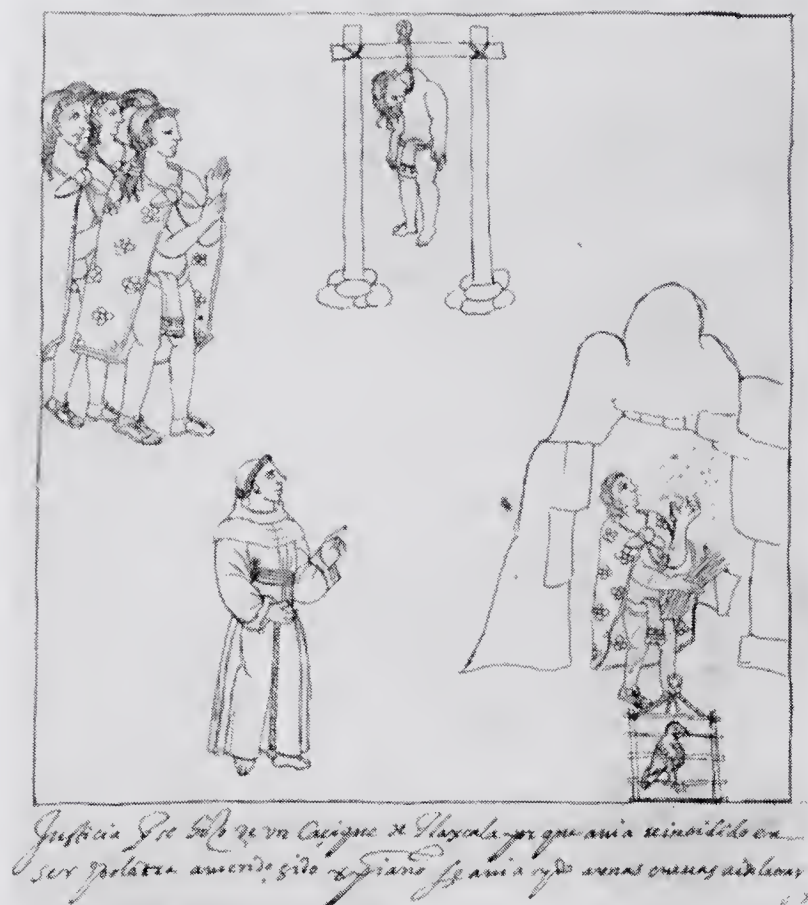 Justicia q̃ se hizo de vn Caçique de tlaxcala por que auia reinsidido en
ser ydolatra auiendo sido xpiano se auia ydo a unas cueuas a idolatrar